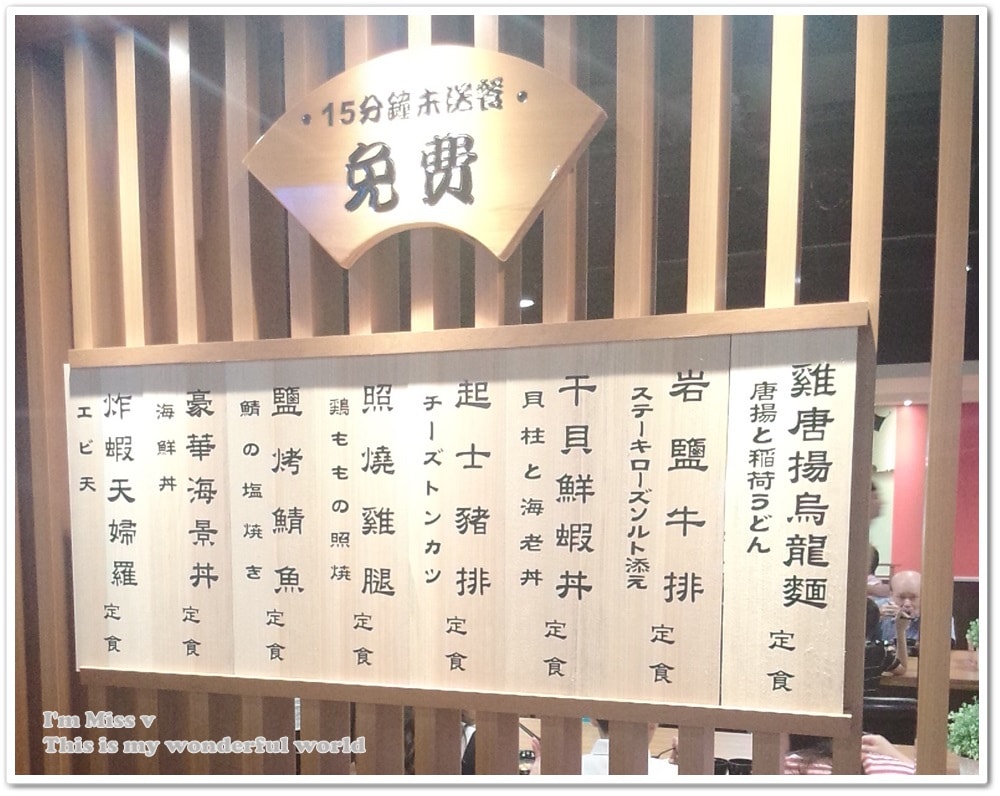 •15分鐘未送餐•
免費
雞唐揚烏龍麵 定食
唐揚と稲荷うどん
岩鹽牛排 定食
ステーキローズソルト添え
干貝鮮蝦丼 定食
貝柱と海老丼
起士豬排 定食
チーズトンカツ
照燒雞腿 定食
鶏ももの照焼
鹽烤鯖魚 定食
鯖の塩焼き
豪華海景丼 定食
海鮮丼
炸蝦天婦羅 定食
エビ天
I'm Miss v
This is my wonderful world